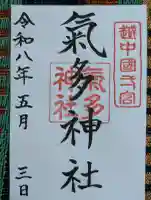 越中國一宮
氣多神社
氣多神社
令和八年五月三日